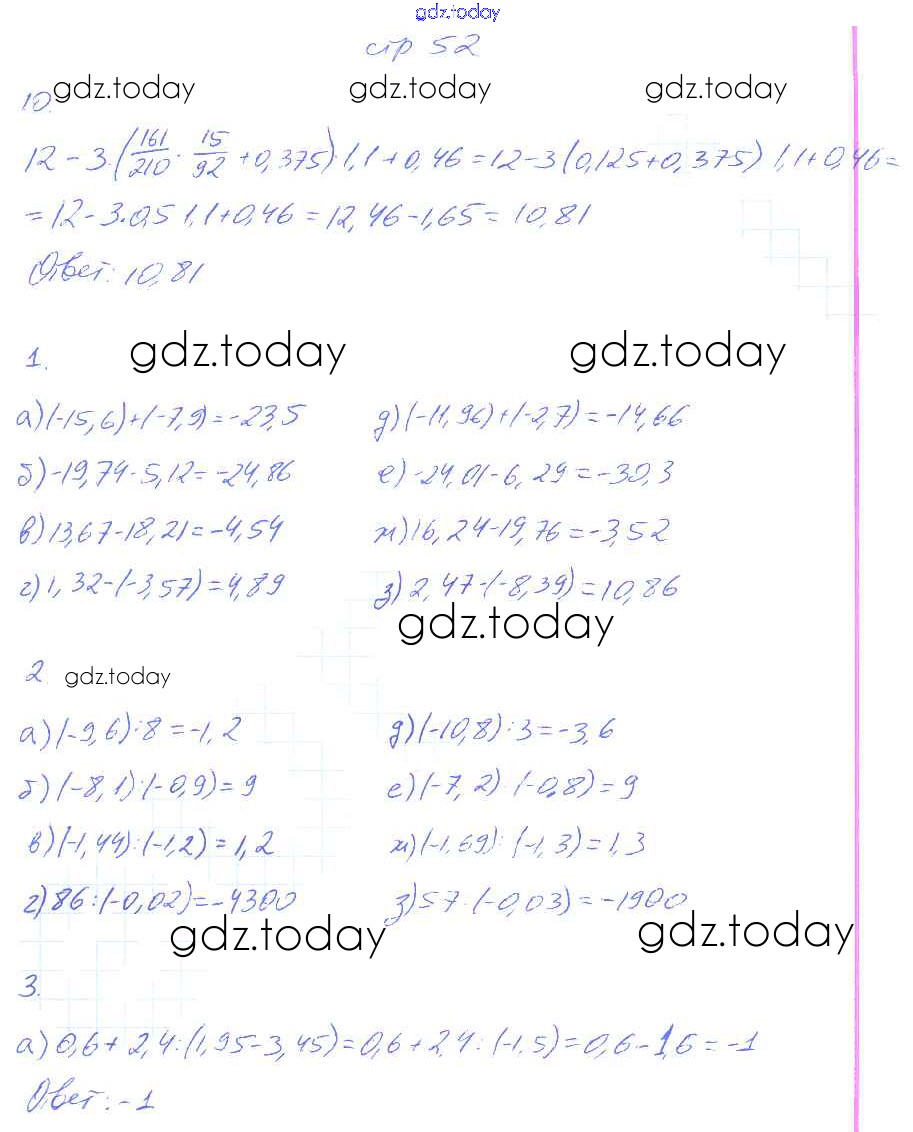 gdz.today
стр 52
gdz.today gdz.today gdz.today
10.
12 - 3·(161/210 · 15/92 + 0,375)·1,1 + 0,46 = 12 - 3(0,125 + 0,375) 1,1 + 0,46 =
= 12 - 3·0,5 1,1 + 0,46 = 12,46 - 1,65 = 10,81
Ответ: 10,81
gdz.today gdz.today
1.
а) (-15,6) + (-7,9) = -23,5 д) (-11,96) + (-2,7) = -14,66
б) -19,74 - 5,12 = -24,86 е) -24,01 - 6,29 = -30,3
в) 13,67 - 18,21 = -4,54 ж) 16,24 - 19,76 = -3,52
г) 1,32 - (-3,57) = 4,89 з) 2,47 - (-8,39) = 10,86
gdz.today
2 gdz.today
а) (-9,6) : 8 = -1,2 д) (-10,8) : 3 = -3,6
б) (-8,1) : (-0,9) = 9 е) (-7,2) : (-0,8) = 9
в) (-1,44) : (-1,2) = 1,2 ж) (-1,69) : (-1,3) = 1,3
г) 86 : (-0,02) = -4300 з) 57 : (-0,03) = -1900
gdz.today gdz.today
3.
а) 0,6 + 2,4 : (1,95 - 3,45) = 0,6 + 2,4 : (-1,5) = 0,6 - 1,6 = -1
Ответ: -1